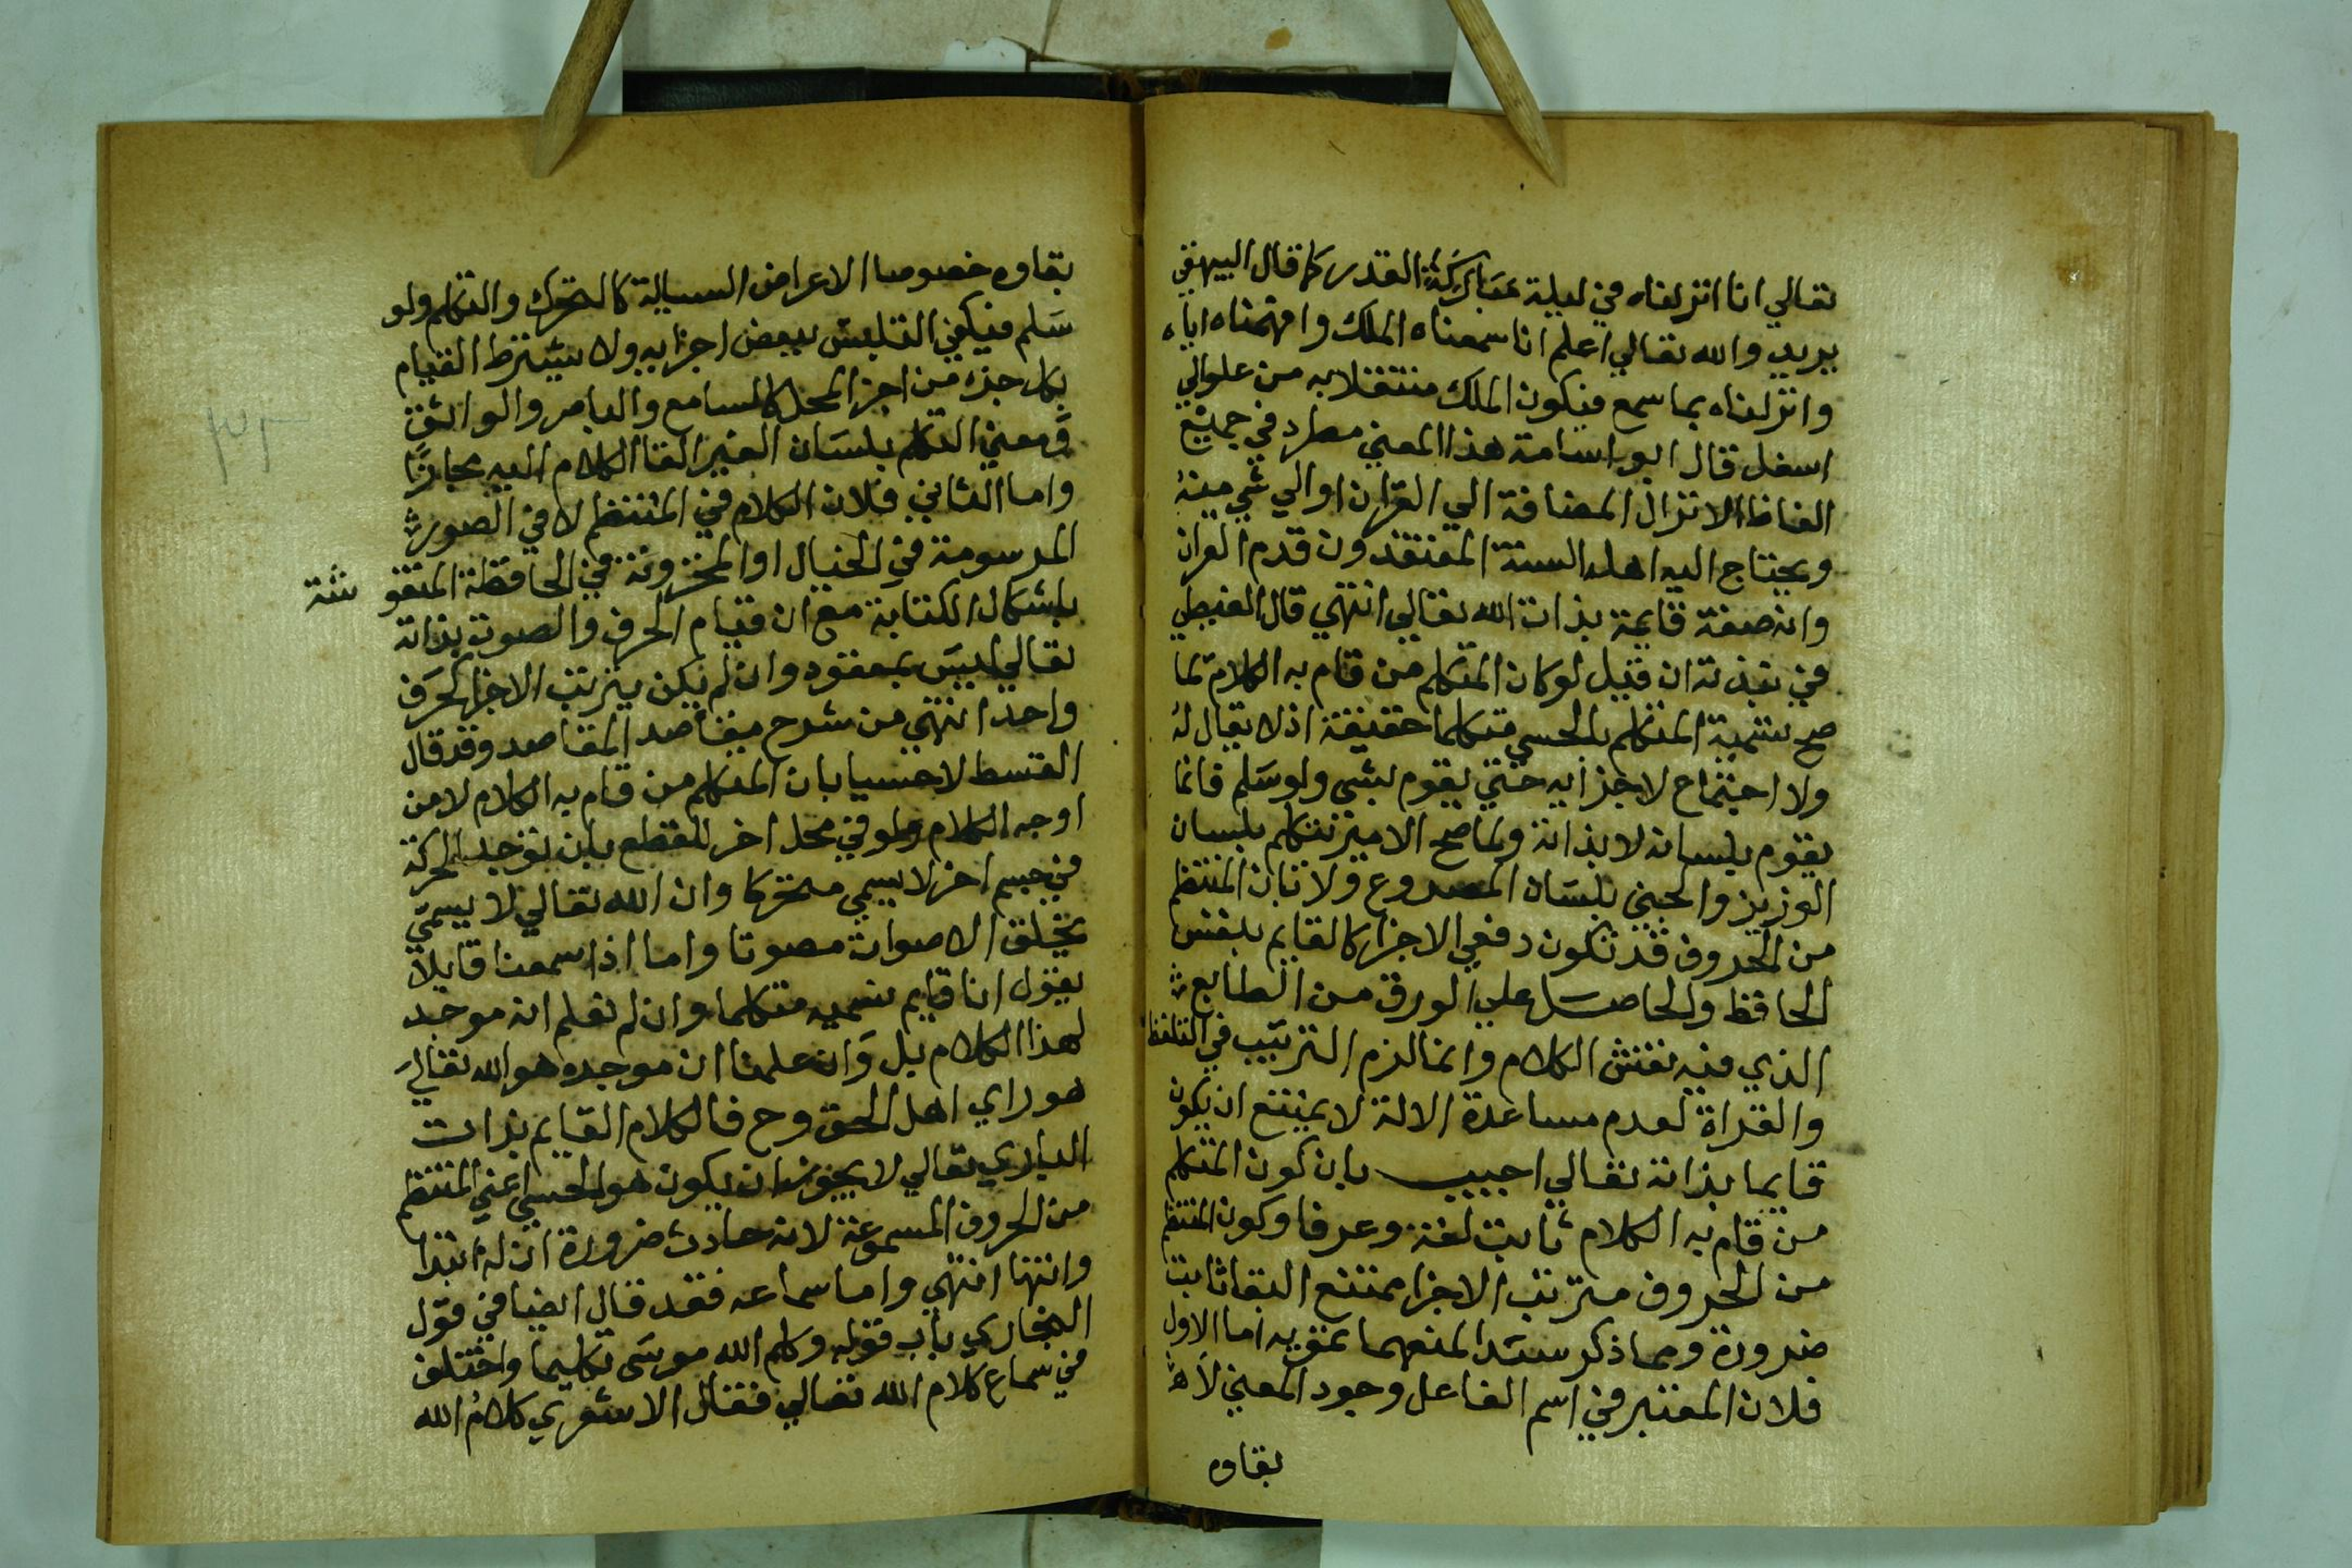 تعالي انا انزلناه في ليلة مباركة القدر كما قال البيهقي
يريد والله تعالي اعلم انا سمعناه الملك وافهمناه اياه
وانزلناه بما سمع فيكون الملك منتقلا به من علو الي
اسفل قال ابو اسامة هذا المعني مطرد في جميع
الفاظ الانزال المضافة الي القران او الي شي منه
ويحتاج اليه اهل السنة المعتقدون قدم القران
وانه صفة قايمة بذات الله تعالي انتهي قال الغيطي
في نبذته ان قيل لو كان المتكلم من قام به الكلام لما
صح تسمية المتكلم بالحسي متكلما حقيقة اذ لا بقا له
ولا اجتماع لاجزايه حتي يقوم بشي ولو سلم فانما
يقوم بلسانه لا بذاته ولما صح الامير تتكلم بلسان
الوزير والجني بلسان المصروع ولان المنتظم
من الحروف قد تكون دفعي الاجزا كالقايم بنفس
الحافظ والحاصل علي الورق من الطابع
الذي فيه نقش الكلام وانما لزم الترتيب في التلفظ
والقراة لعدم مساعدة الالة لا يمتنع ان يكون
قايما بذاته تعالي اجيب بان كون المتكلم
من قام به الكلام ثابت لغة وعرفا وكون المنتظم
من الحروف مترتب الاجزا ممتنع البقا ثابت
ضرورة وما ذكر سندا لمنعهما تمويه اما الاول
فلان المعتبر في اسم الفاعل وجود المعني لا
بقاوه
بقاوه خصوصا الاعراض السيالة كالتحرك والتكلم ولو
سلم فيكفي التلبس ببعض اجزايه ولا يشترط القيام
بكل جزء من اجزا المحل كالسامع والباصر والوا
ومعني التكلم بلسان الغير القا الكلام اليه مجازا
واما الثاني فلان الكلام في المنتظم لا في الصورة
المرسومة في الخيال او المخزونة في الحافظة المنقو شة
باشكال الكتابة مع ان قيام الحرف والصوت بذاته
تعالي ليس بمعقود وان لم يكن يترتب الاجزا كحرف
واحد انتهي من شرح مقاصد المقاصد وقد قال
القسط لاخسيا بان المتكلم من قام به الكلام لا من
اوجد الكلام ولو في محل اخر للقطع بان توجد الحركة
في جسم اخر لا يسمي متحركا وان الله تعالي لا يسمي
بخلق الاصوات مصوتا واما اذا سمعنا قايلا
يقول انا قايم نسميه متكلما وان لم نعلم انه موجد
لهذا الكلام بل وان علمنا ان موجده هو الله تعالي
هو راي اهل الحق وح فالكلام القايم بذات
الباري تعالي لا يجوز ان يكون هو الحسي اعني المنتظم
من الحروف المسموعة لانه حادث ضرورة ان له ابتدا
وانتها انتهي واما سماعه فقد قال ايضا في قول
البخاري باب قوله وكلم الله موسى تكليما واختلف
في سماع كلام الله تعالي فقال الاشعري كلام الله